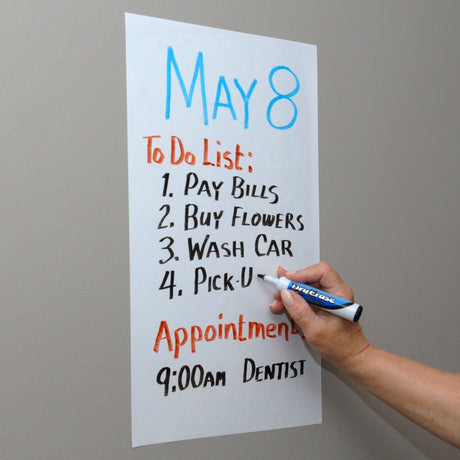 MAY 8
To Do List:
1. PAY BILLS
2. BUY FLOWERS
3. WASH CAR
4. PICK-U
DryErase
Appointment
9:00AM DENTIST